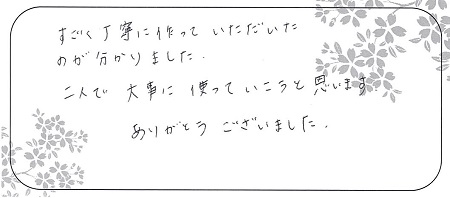 すごく丁寧に作っていただいた
のが分かりました.
二人で 大事に 使っていこうと思います.
ありがとう ございました.